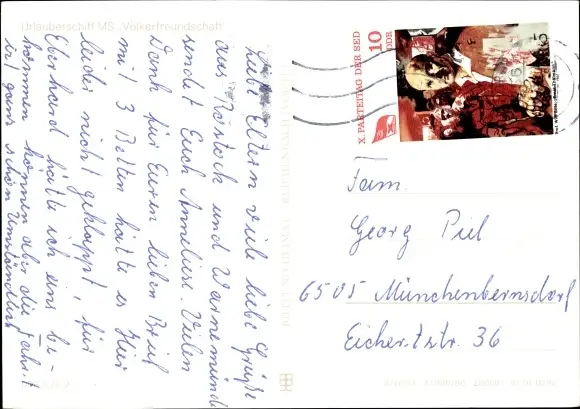 Urlauberschiff MS „Völkerfreundschaft"
Liebe Eltern viele liebe Grüße
aus Rostock und Warnemünde
sendet Euch Anneliese. Vielen
Dank für Euren lieben Brief
mit 3 Betten hätte es hier
leider nicht geklappt, für
Eberhard hätte ich eins be-
kommen können aber die Fahrt
ist ganz schön umständlich
X. PARTEITAG DER SED
10
DDR
Fam.
Georg Piel
6505 Münchenbernsdorf
Eichertstr. 36